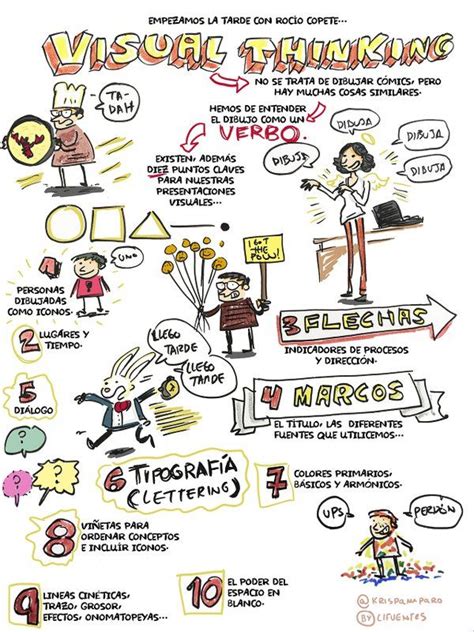 EMPEZAMOS LA TARDE CON ROCÍO COPETE...
VISUAL THINKING
NO SE TRATA DE DIBUJAR CÓMICS, PERO
HAY MUCHAS COSAS SIMILARES.
TA-
DAH
HEMOS DE ENTENDER
EL DIBUJO COMO UN
VERBO.
DIBUJA
DIBUJA
DIBUJA
EXISTEN, ADEMÁS
DIEZ PUNTOS CLAVES
PARA NUESTRAS
PRESENTACIONES
VISUALES...
I GOT
THE
POW!
1
UNO
PERSONAS
DIBUJADAS
COMO ICONOS.
2 LUGARES Y
TIEMPO.
3 FLECHAS
INDICADORES DE PROCESOS
Y DIRECCIÓN.
LLEGO
TARDE
LLEGO
TARDE
4 MARCOS
EL TÍTULO, LAS DIFERENTES
FUENTES QUE UTILICEMOS...
5
DIÁLOGO
?
?
?
6 TIPOGRAFÍA
(LETTERING)
7 COLORES PRIMARIOS,
BÁSICOS Y ARMÓNICOS.
8 VIÑETAS PARA
ORDENAR CONCEPTOS
E INCLUIR ICONOS.
UPS
PERDÓN
9 LINEAS CINÉTICAS,
TRAZO, GROSOR,
EFECTOS, ONOMATOPEYAS...
10 EL PODER DEL
ESPACIO EN
BLANCO.
@KRISPAMPARO
BY CIFUENTES